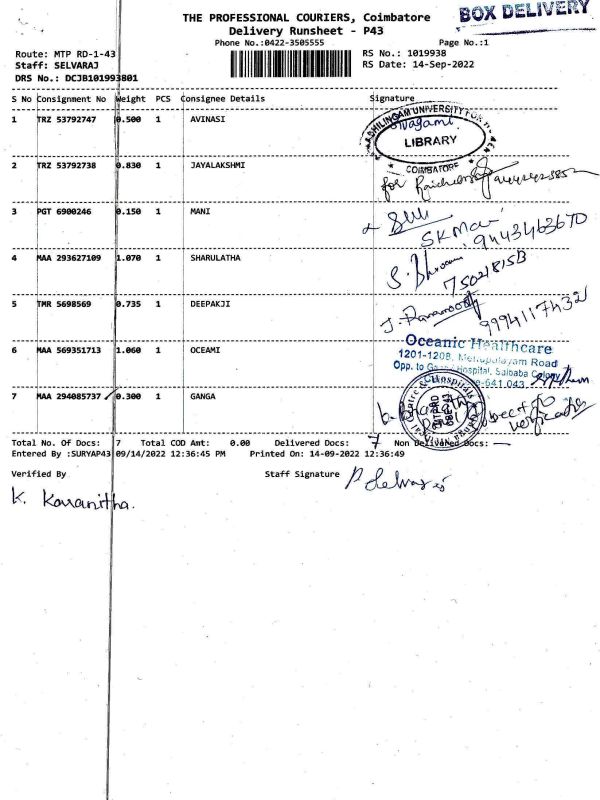 THE PROFESSIONAL COURIERS, Coimbatore
BOX DELIVERY
Delivery Runsheet - P43
Phone No.:0422-3505555 Page No.:1
Route: MTP RD-1-43 RS No.: 1019938
Staff: SELVARAJ RS Date: 14-Sep-2022
DRS No.: DCJB101993801
S No Consignment No Weight PCS Consignee Details Signature
1 TRZ 53792747 0.500 1 AVINASI
LIBRARY
COIMBATORE
2 TRZ 53792738 0.830 1 JAYALAKSHMI
for
3 PGT 6900246 0.150 1 MANI
SK Mani
9443463670
4 MAA 293627109 1.070 1 SHARULATHA
5 TMR 5698569 0.735 1 DEEPAKJI
9994117432
6 MAA 569351713 1.060 1 OCEAMI
Oceanic Healthcare
1201-1208, Mettupalayam Road
Opp. to Hospital, Saibaba Colony
-641 043.
7 MAA 294085737 0.300 1 GANGA
Subject to
verification
Total No. Of Docs: 7 Total COD Amt: 0.00 Delivered Docs: 7 Non Delivered Docs: —
Entered By :SURYAP43 09/14/2022 12:36:45 PM Printed On: 14-09-2022 12:36:49
Verified By Staff Signature
K. Kavanitha.